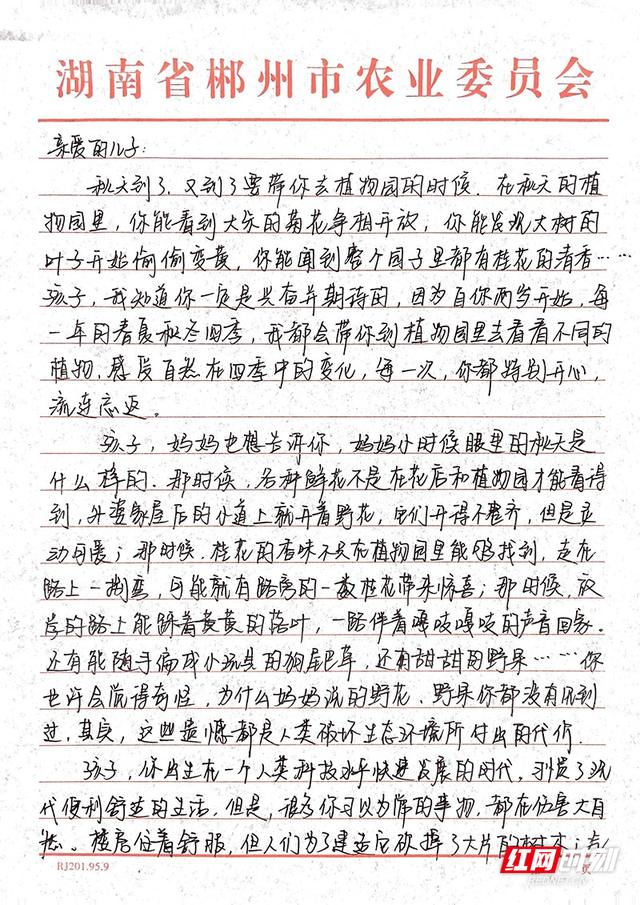 湖南省郴州市农业委员会
亲爱的儿子:
秋天到了,又到了要带你去植物园的时候.在秋天的植
物园里,你能看到大朵的菊花争相开放,你能发现大树的
叶子开始偷偷变黄,你能闻到整个园子里都有桂花的清香……
孩子,我知道你一定是兴奋并期待的,因为自你两岁开始,每
一年的春夏秋冬四季,我都会带你到植物园里去看看不同的
植物,感受自然在四季中的变化,每一次,你都特别开心,
流连忘返。
孩子,妈妈也想告诉你,妈妈小时候眼里的秋天是
什么样的.那时候,各种鲜花不是在花店和植物园才能看得
到,外婆家屋后的小道上就开着野花,它们开得不整齐,但是灵
动可爱;那时候.桂花的香味不只在植物园里能够找到,走在
路上一拐弯,可能就有路旁的一数桂花带来惊喜;那时候,放
学的路上能踩着黄黄的落叶,一路伴着嘎吱嘎吱的声音回家.
还有能随手编成小玩具的狗尾巴草,还有甜甜的野果……你
也许会觉得奇怪,为什么妈妈说的野花、野果你都没有见到
过,其实,这些遗憾都是人类破坏生态环境所付出的代价.
孩子,你出生在一个人类科技水平快速发展的时代,习惯了现
代便利舒适的生活,但是,很多你习以为常的事物,都在伤害大自
然。楼房住着舒服,但人们为了建造它砍掉了大片的树木;
RJ201.95.9
页
红网时刻
REDNET.CN